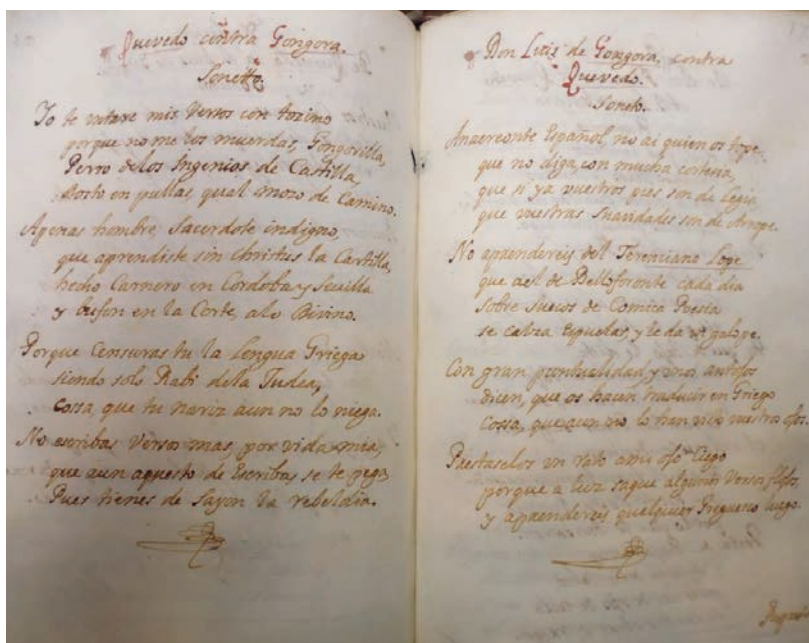 Quevedo contra Gongora.
Sonetto.
Yo te untare mis Versos con tozino
porque no me los muerdas, Gongorilla,
Perro delos Ingenios de Castilla,
Docto en pullas, qual mozo de Camino.
Apenas hombre, Sacerdote indigno,
que aprendiste sin christus la Cartilla,
hecho Carnero en Cordoba y Sevilla
y bufon en la Corte, alo Divino.
Porque Censuras tu la lengua Griega
siendo solo Rabi dela Judea,
Cossa, que tu nariz aun no lo niega.
No escribas Versos mas, por vida mia,
que aun aquesto de Escribas se te pega,
Pues tienes de Sayon la rebeldia.
Don Luis de Gongora, contra
Quevedo.
Soneto.
Anacreonte Español, no ai quien os tope
que no diga, con mucha cortesia,
que si ya vuestros pies son de Elegia,
que vuestras suavidades son de Arrope.
No aprendereis del Terenciano Lope
que al de Belloforonte cada dia
sobre suecos de Comica Poesia
se calza Espuelas, y le da un galope.
Con gran puntualidad, y unos antojos
dicen, que os hacen traducir en Griego
Cossa, que aun no lo han visto vuestros ojos.
Prestaselos un rato a mi ojo Ciego
porque a luz saque algunos Versos flojos,
y aprendereis qualquier Griguesco luego.